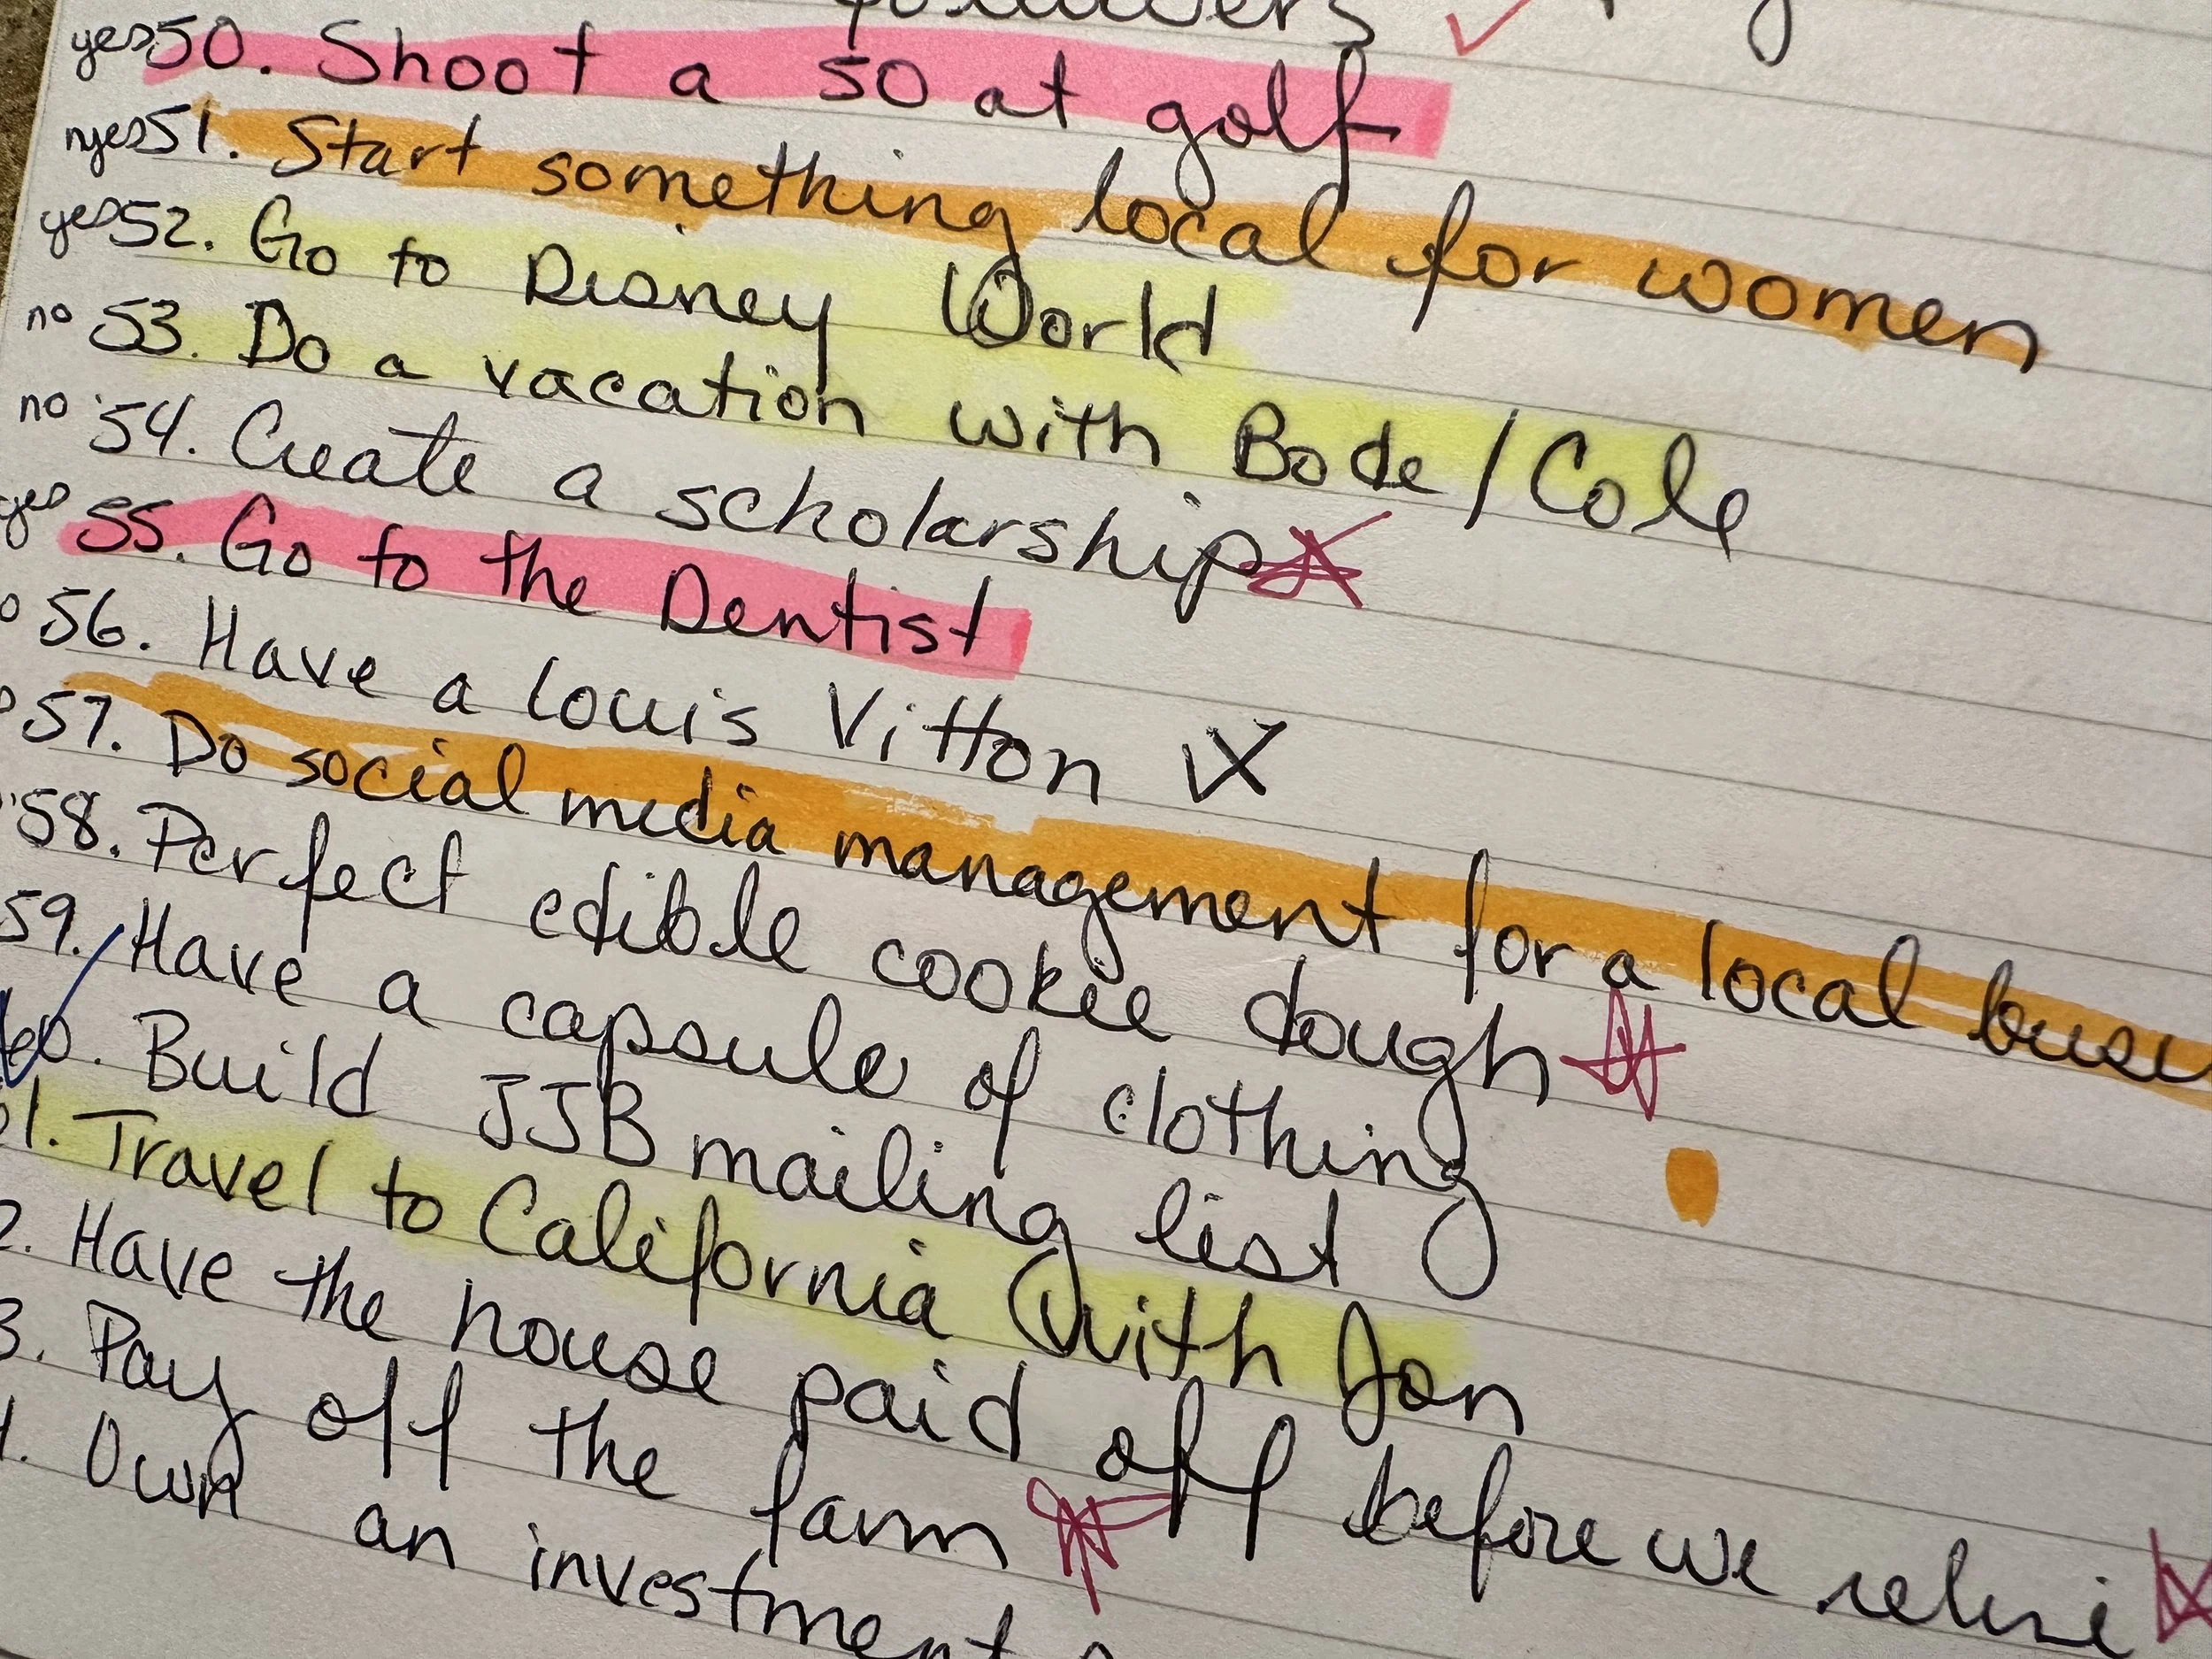 yes 50. Shoot a 50 at golf
yes 51. Start something local for women
yes 52. Go to Disney World
no 53. Do a vacation with Bode/Cole
no 54. Create a scholarship
yes 55. Go to the Dentist
56. Have a Louis Vitton
57. Do social media management for a local
58. Perfect edible cookie dough
59. Have a capsule of clothing
60. Build JJB mailing list
1. Travel to California with Jon
2. Have the house paid off before we retire
3. Pay off the farm
Own an investment